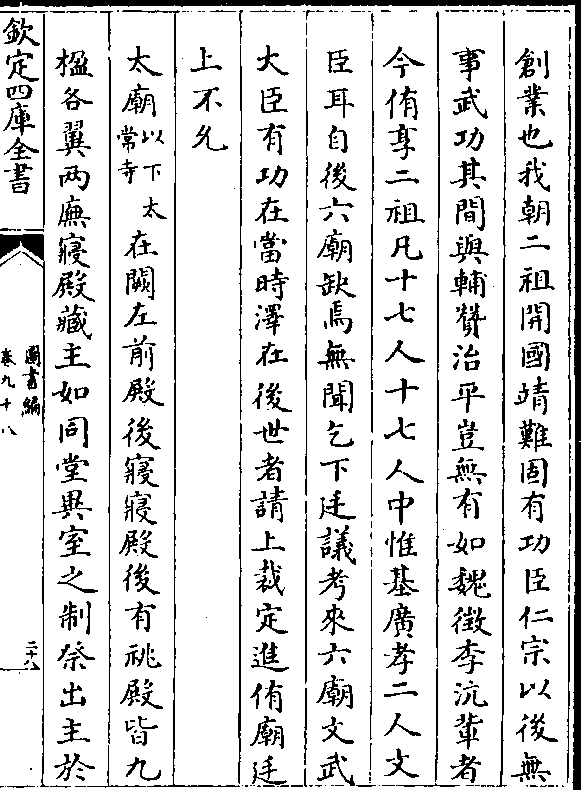 創業也我朝二祖開國靖難固有功臣仁宗以後無
事武功其間與輔贊治平豈無有如魏徴李沆輩者
今侑享二祖凡十七人十七人中惟基廣孝二人文
臣耳自後六廟缺焉無聞乞下廷議考來六廟文武
大臣有功在當時澤在後世者請上裁定進侑廟廷
上不允
太廟以下太常寺在闕左前殿後寢寢殿後有祧殿皆九
楹各翼两廡寢殿藏主如同堂異室之制祭出主於
欽定四庫全書
圖書編
卷九十八
二十八